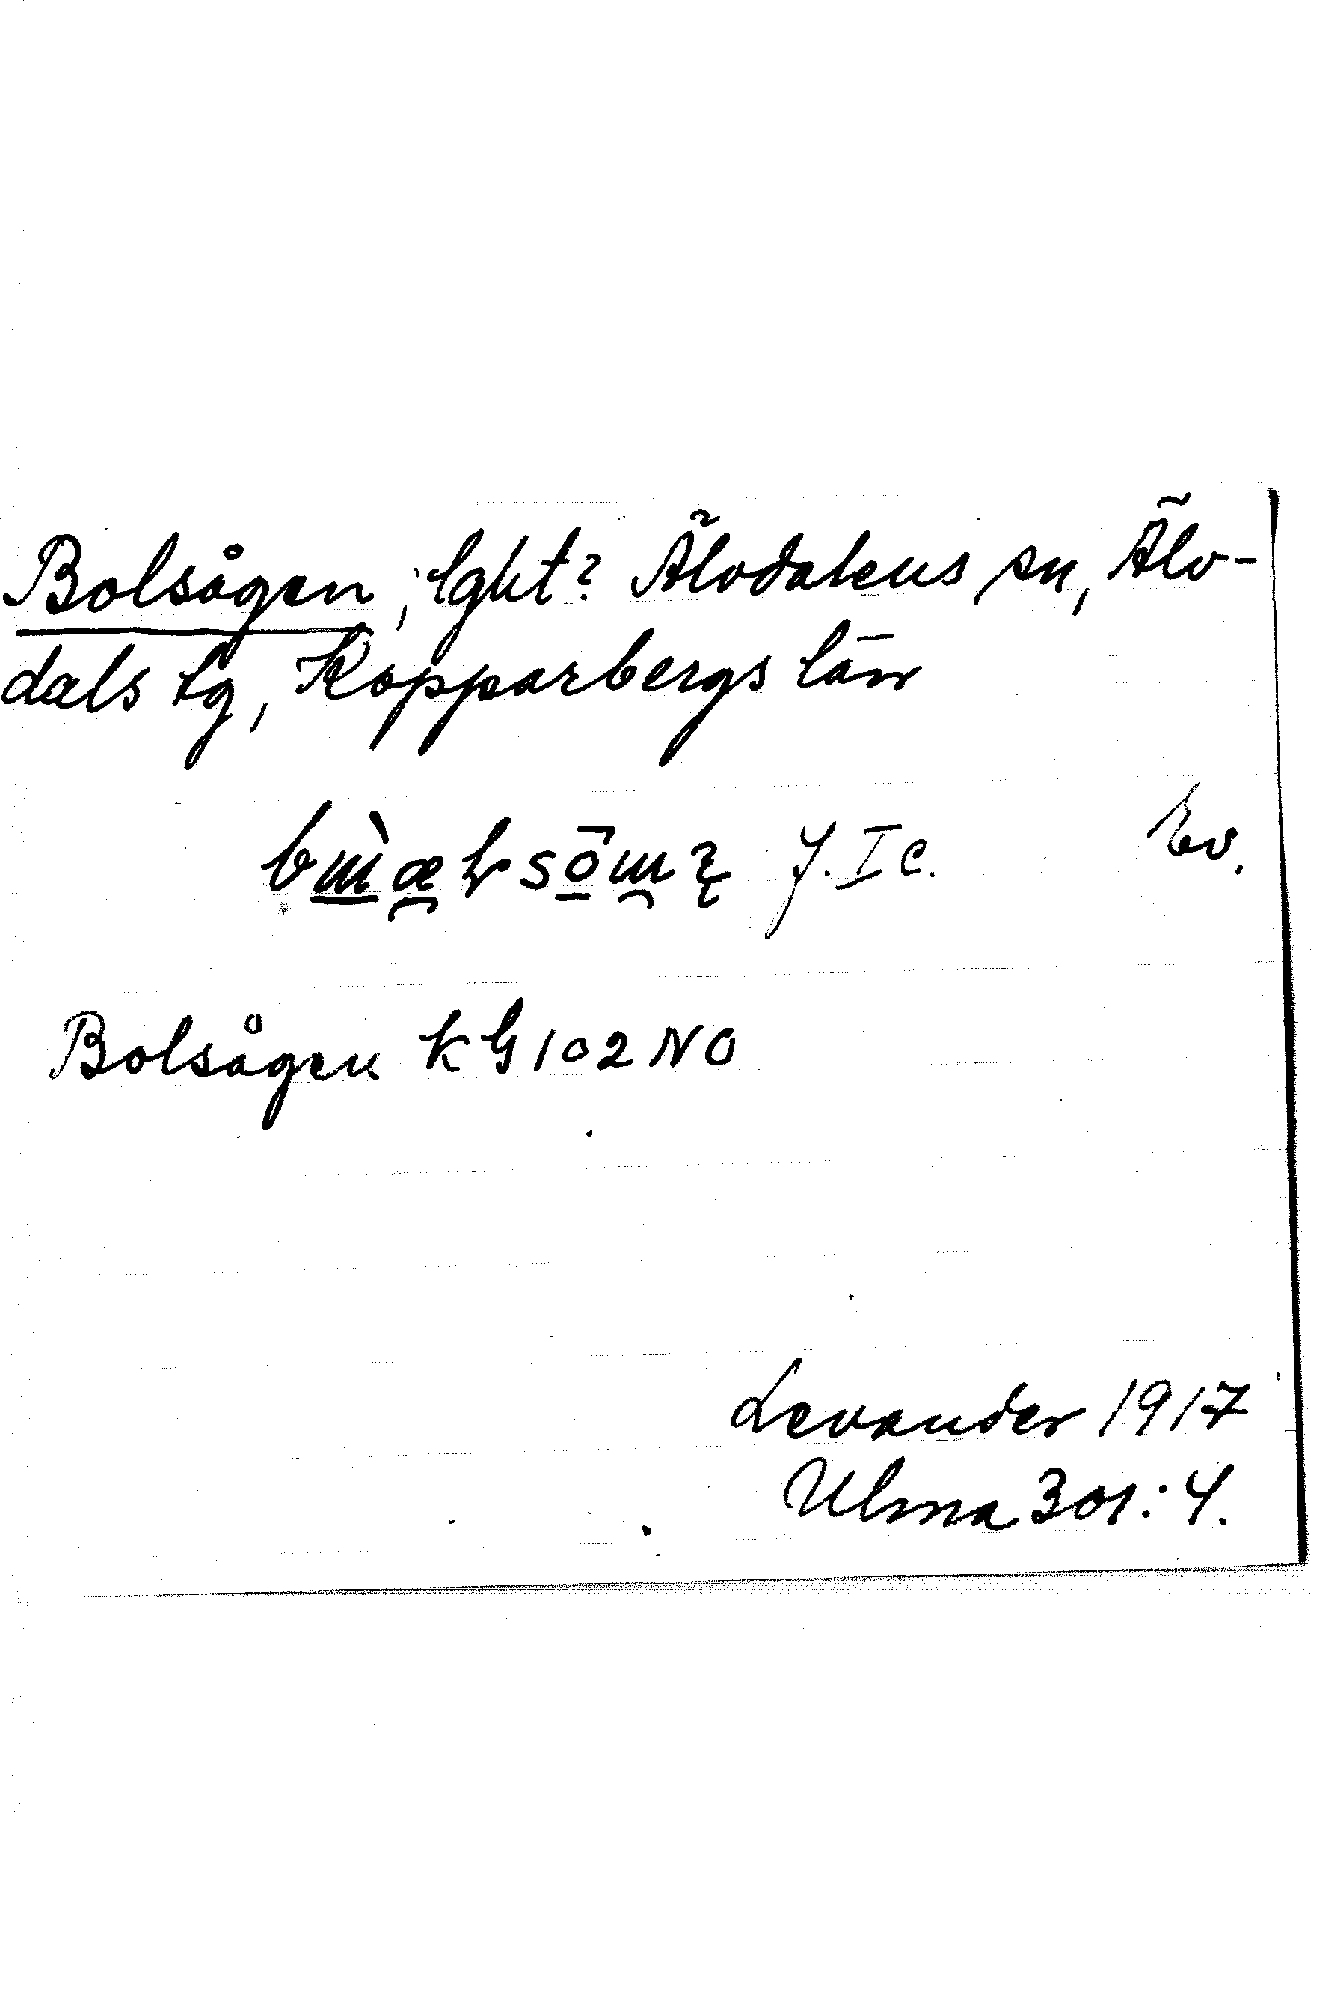 Bolsågen, lght? Älvdalens sn, Älv-
dals tg, Kopparbergs län
f. I c. Ev.
Bolsågen KG 102 NO
Levander 1917
Ulma 301:4.